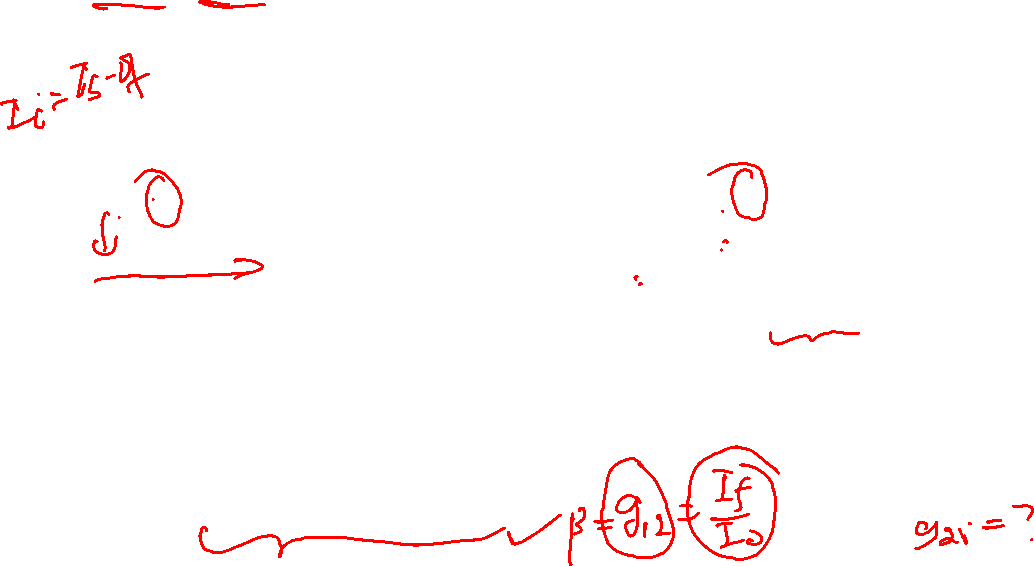 Ii = Is - If
β = g12 = If/Io
g21 = ?